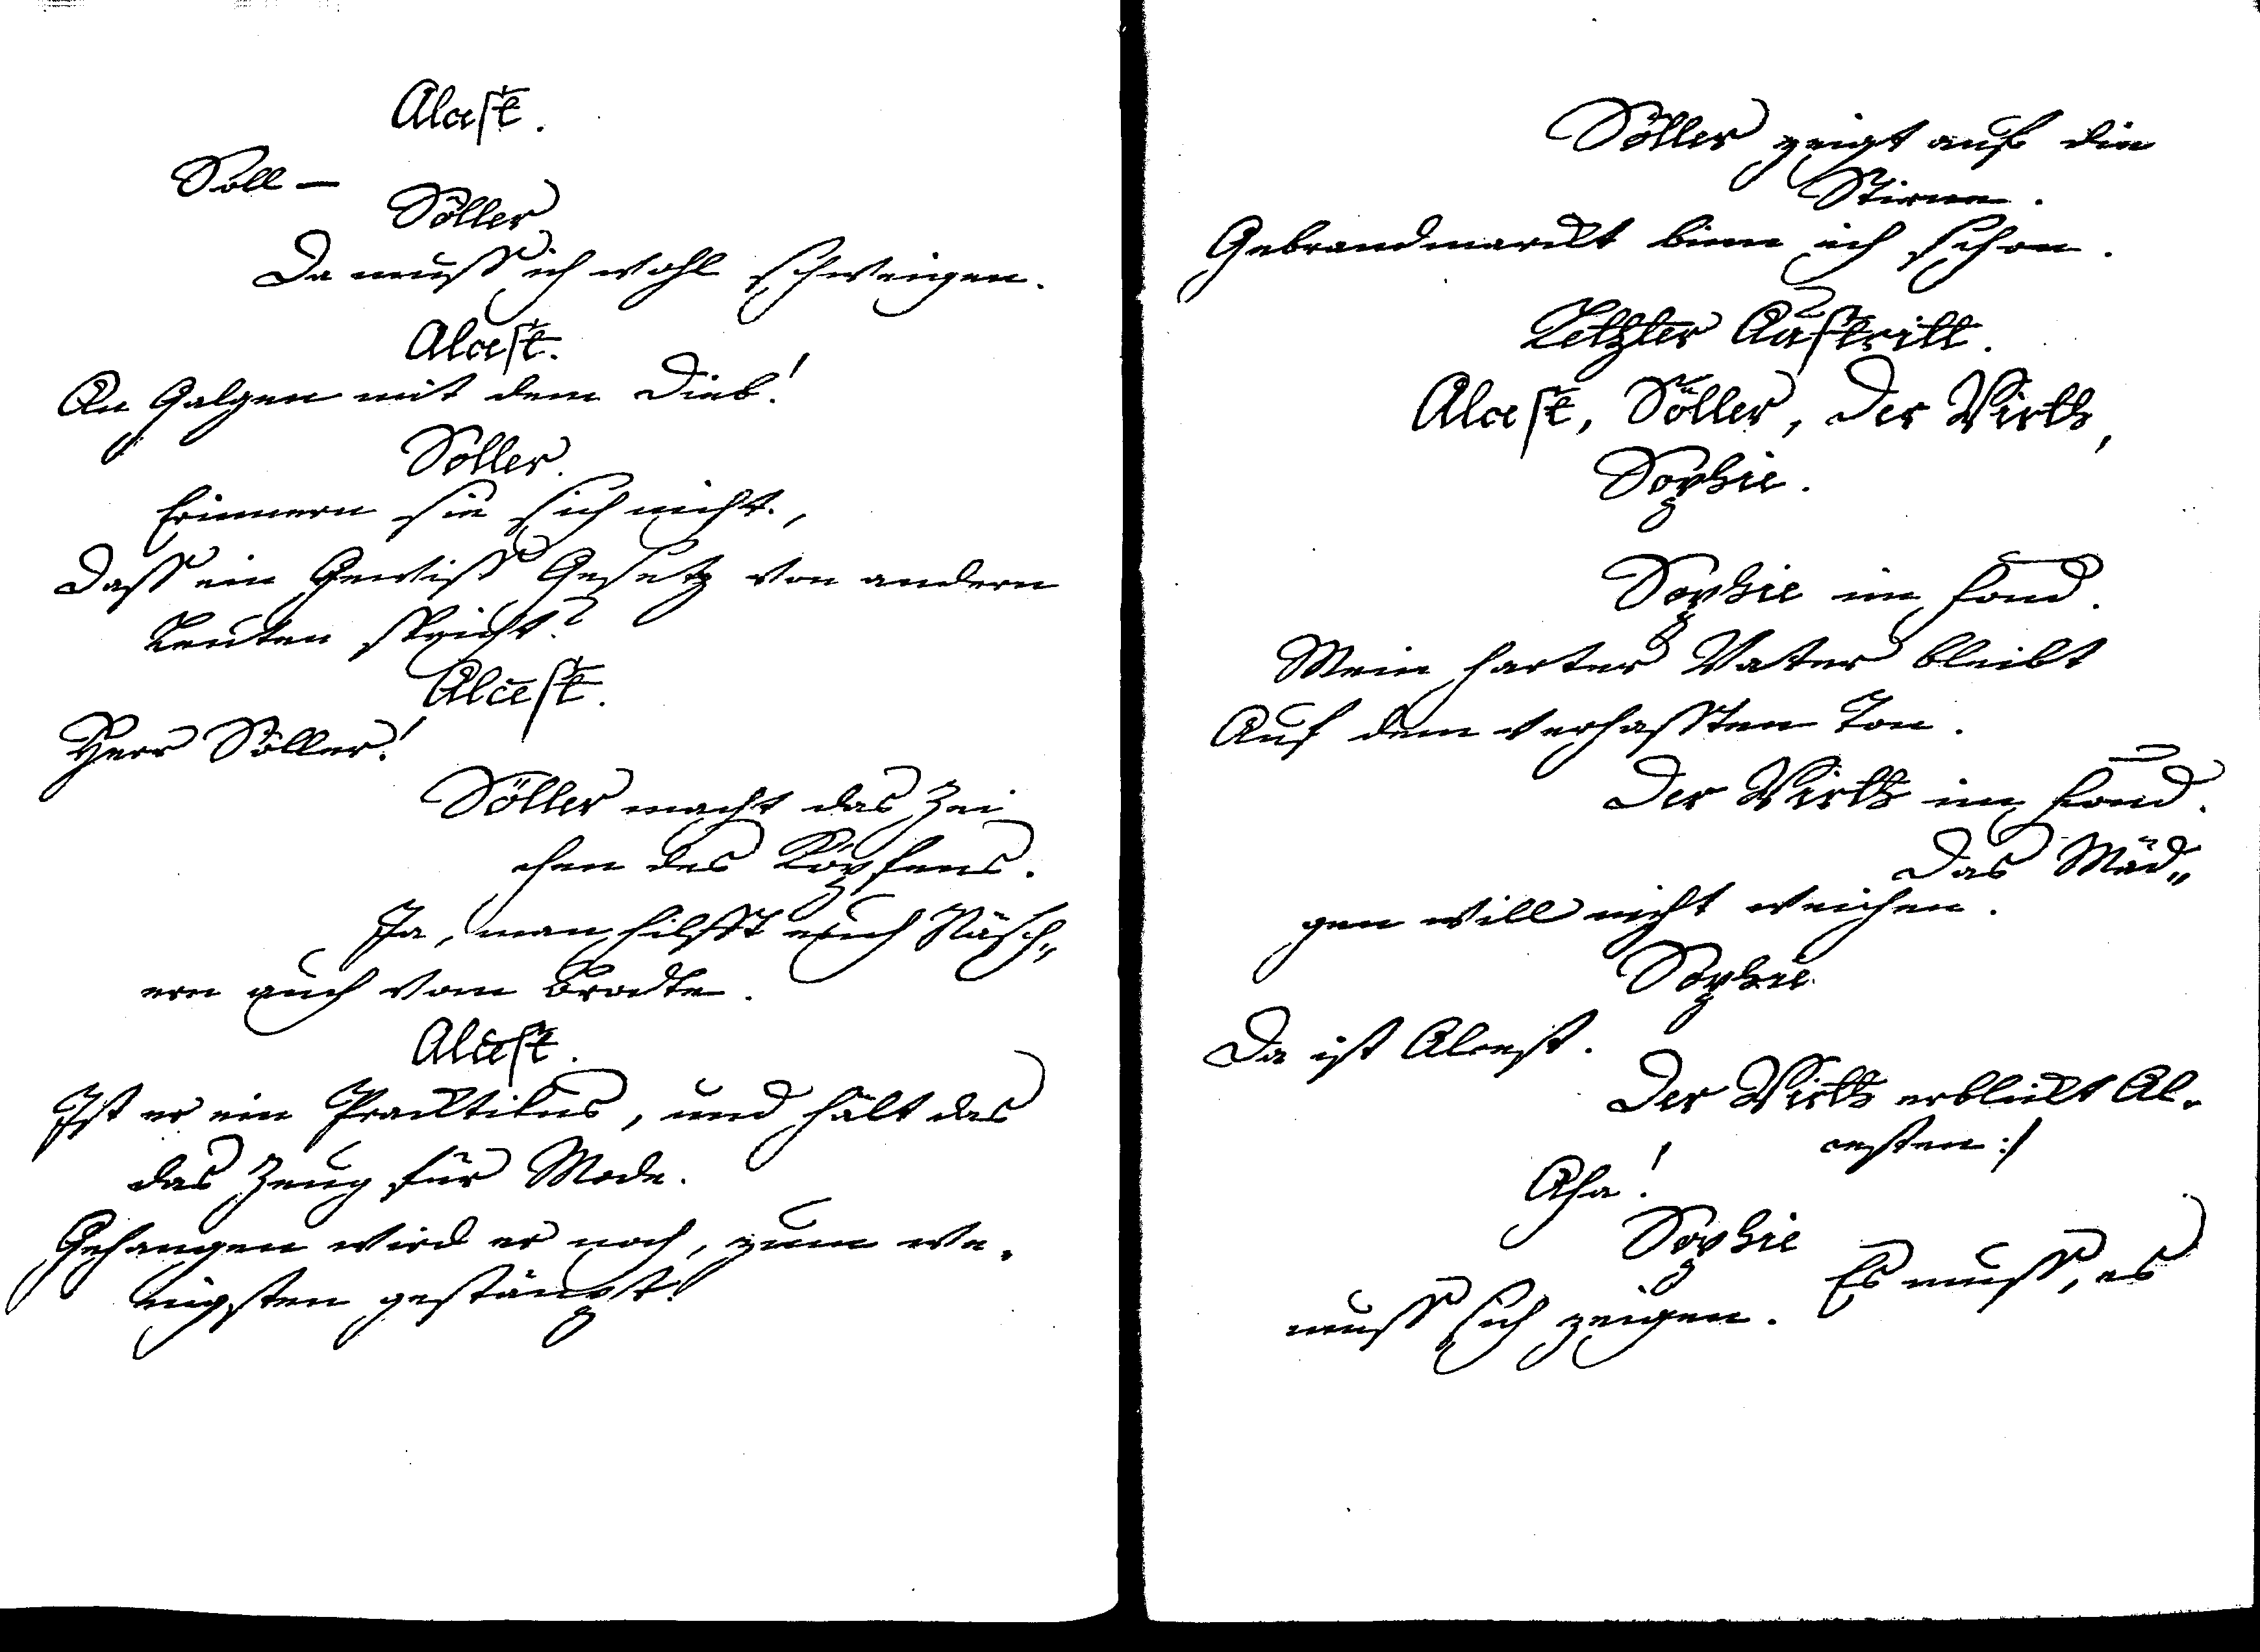 Alcest.
Soll —
Söller
Da muss ich wohl schweigen.
Alcest.
An Galgen mit dem Dieb!
Söller.
Erinnern sie sich nicht,
Dass ein Gewiss Gesetz von andern
Leuten spricht?
Alcest.
Herr Söller!
Söller macht das Zei
chen des Köpfens.
Ja, man hilfft euch Näsch„
ern auch vom Brodte.
Alcest.
Ist er ein Pracktikus, und hält das
das Zeug für Mode.
Gehangen wird er noch, zum we„
nigsten gestäupt!
Söller zeigt auf die
Stirne.
Gebrandmarckt binn ich schon.
Letzter Auftritt.
Alcest, Söller, der Wirth,
Sophie.
Sophie im Fond.
Mein harter Vater bleibt
Auf dem verhassten Ton.
Der Wirth im Fond.
Das Mäd„
gen will nicht weichen.
Sophie
Da ist Alcest.
Der Wirth erblickt Al„
cesten :/
Aha!
Sophie
Es muss, es
muss sich zeigen.